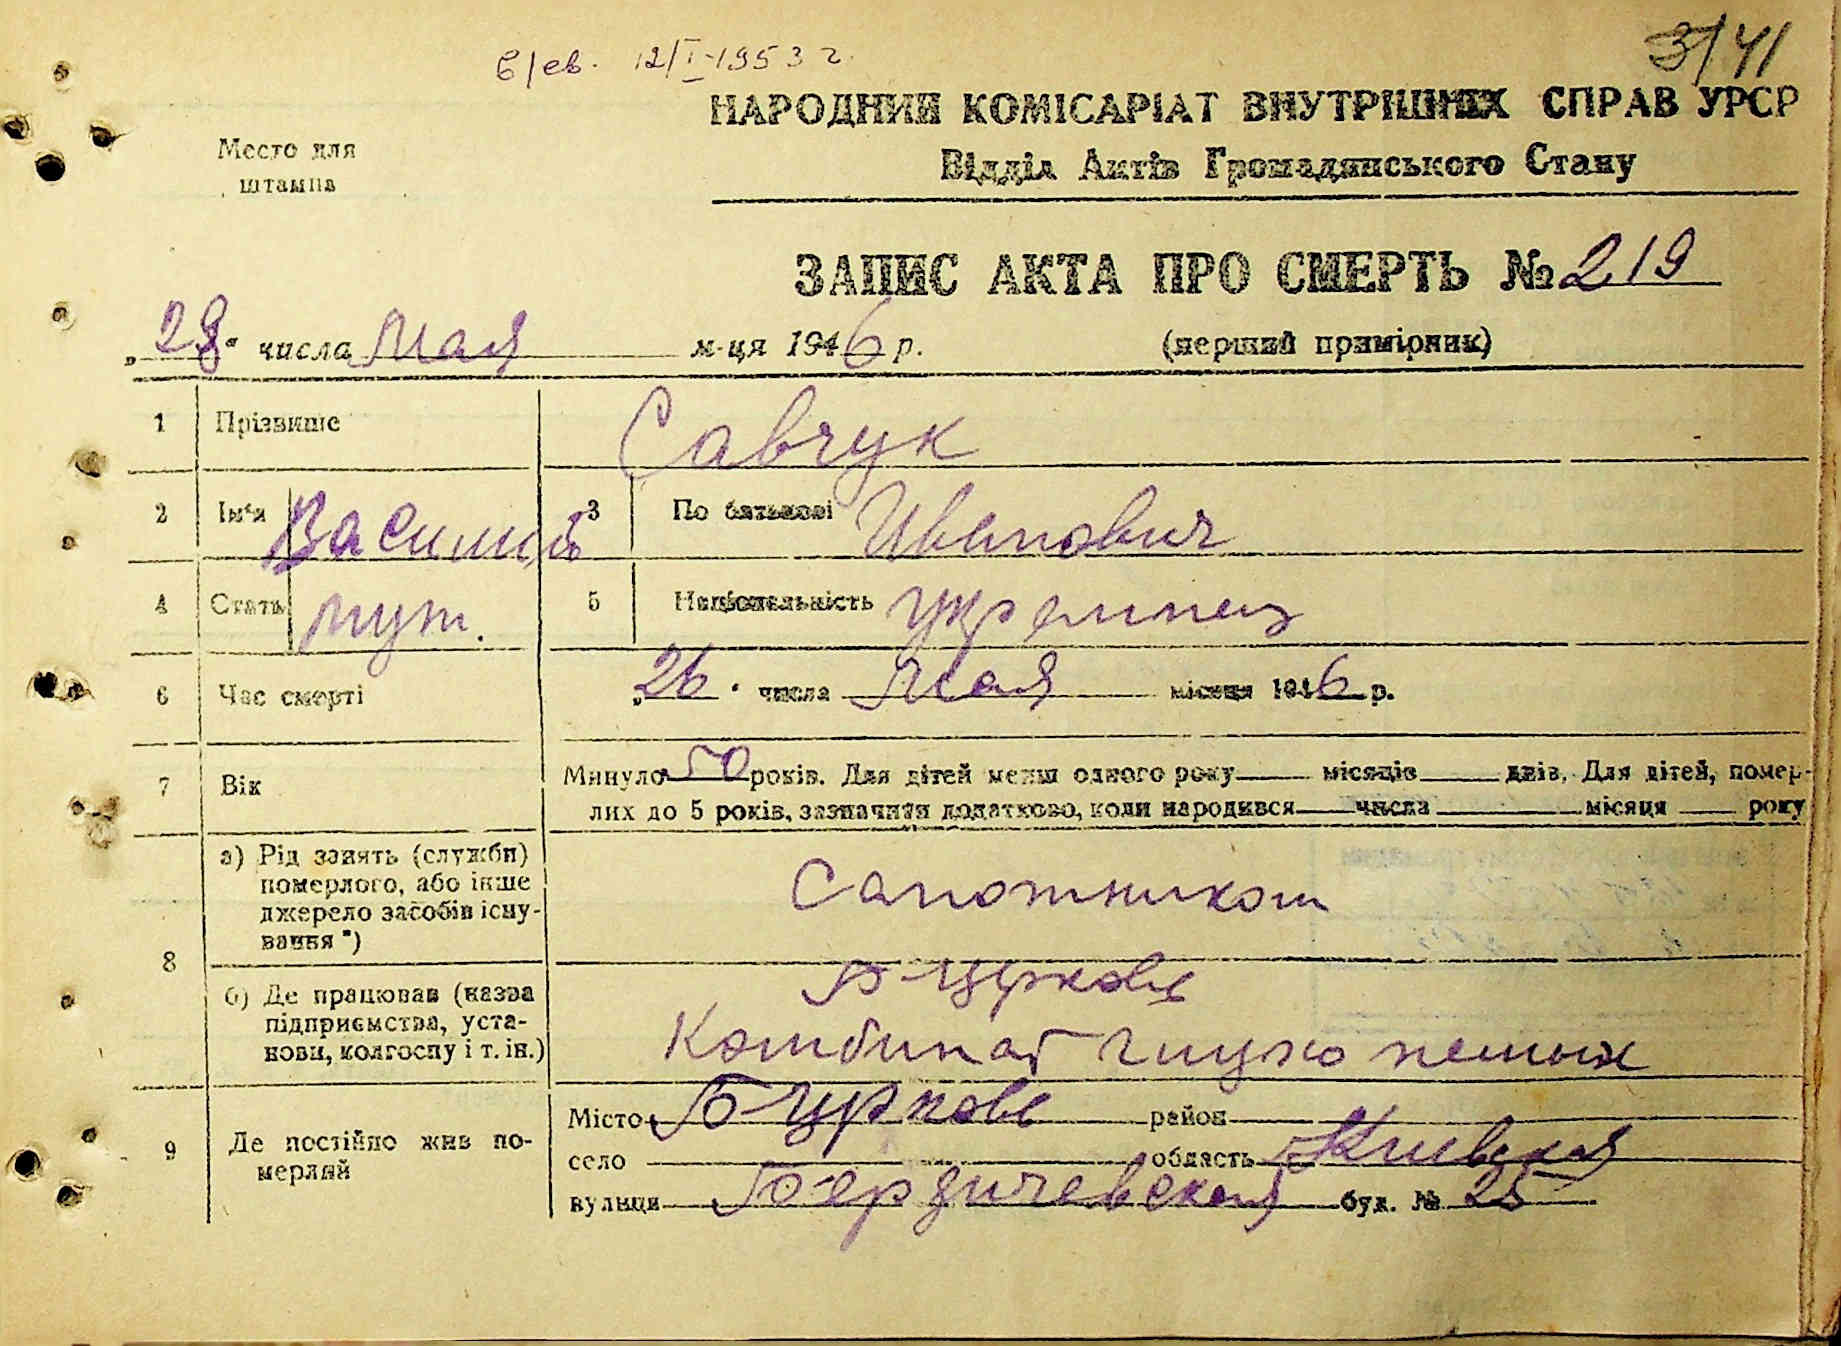 в/ев. 12/I-1953 г.
3/41
Место для
штампа
НАРОДНИЙ КОМІСАРІАТ ВНУТРІШНІХ СПРАВ УРСР
Відділ Актів Громадянського Стану
ЗАПИС АКТА ПРО СМЕРТЬ № 219
„28“ числа Мая м-ця 1946 р. (перший примірник)
1 Прізвище Савчук
2 Ім'я Василий 3 По батькові Иванович
4 Стать муж. 5 Національність украинец
6 Час смерті „26“ числа Мая місяця 1946 р.
7 Вік Минуло 50 років. Для дітей менш одного року місяців днів. Для дітей, помер-
лих до 5 років, зазначити додатково, коли народився числа місяця року
8 а) Рід занять (служби)
померлого, або інше
джерело засобів існу-
вання*)
Сапожником
б) Де працював (назва
підприємства, уста-
нови, колгоспу і т. ін.)
Б-Церковь
Комбинат глухо немых
9 Де постійно жив по-
мерлий
Місто Б-Церковь район
село область Киевская
вулиця Бердичевская буд. № 25